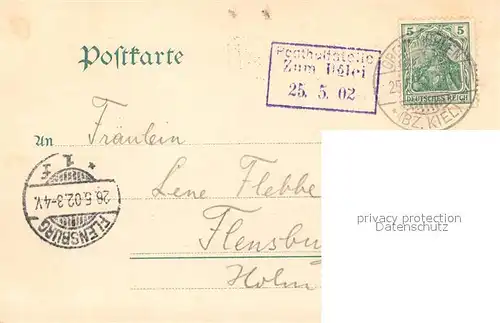 Postkarte
Posthülfstelle
25. 5. 02
5 5
DEUTSCHES REICH
(BZ. KIEL)
An Fräulein
Lene Flebbe
Flensbu
Holm
* 1. f
26.5.02.3-4V.
FLENSBURG
privacy protection
Datenschutz